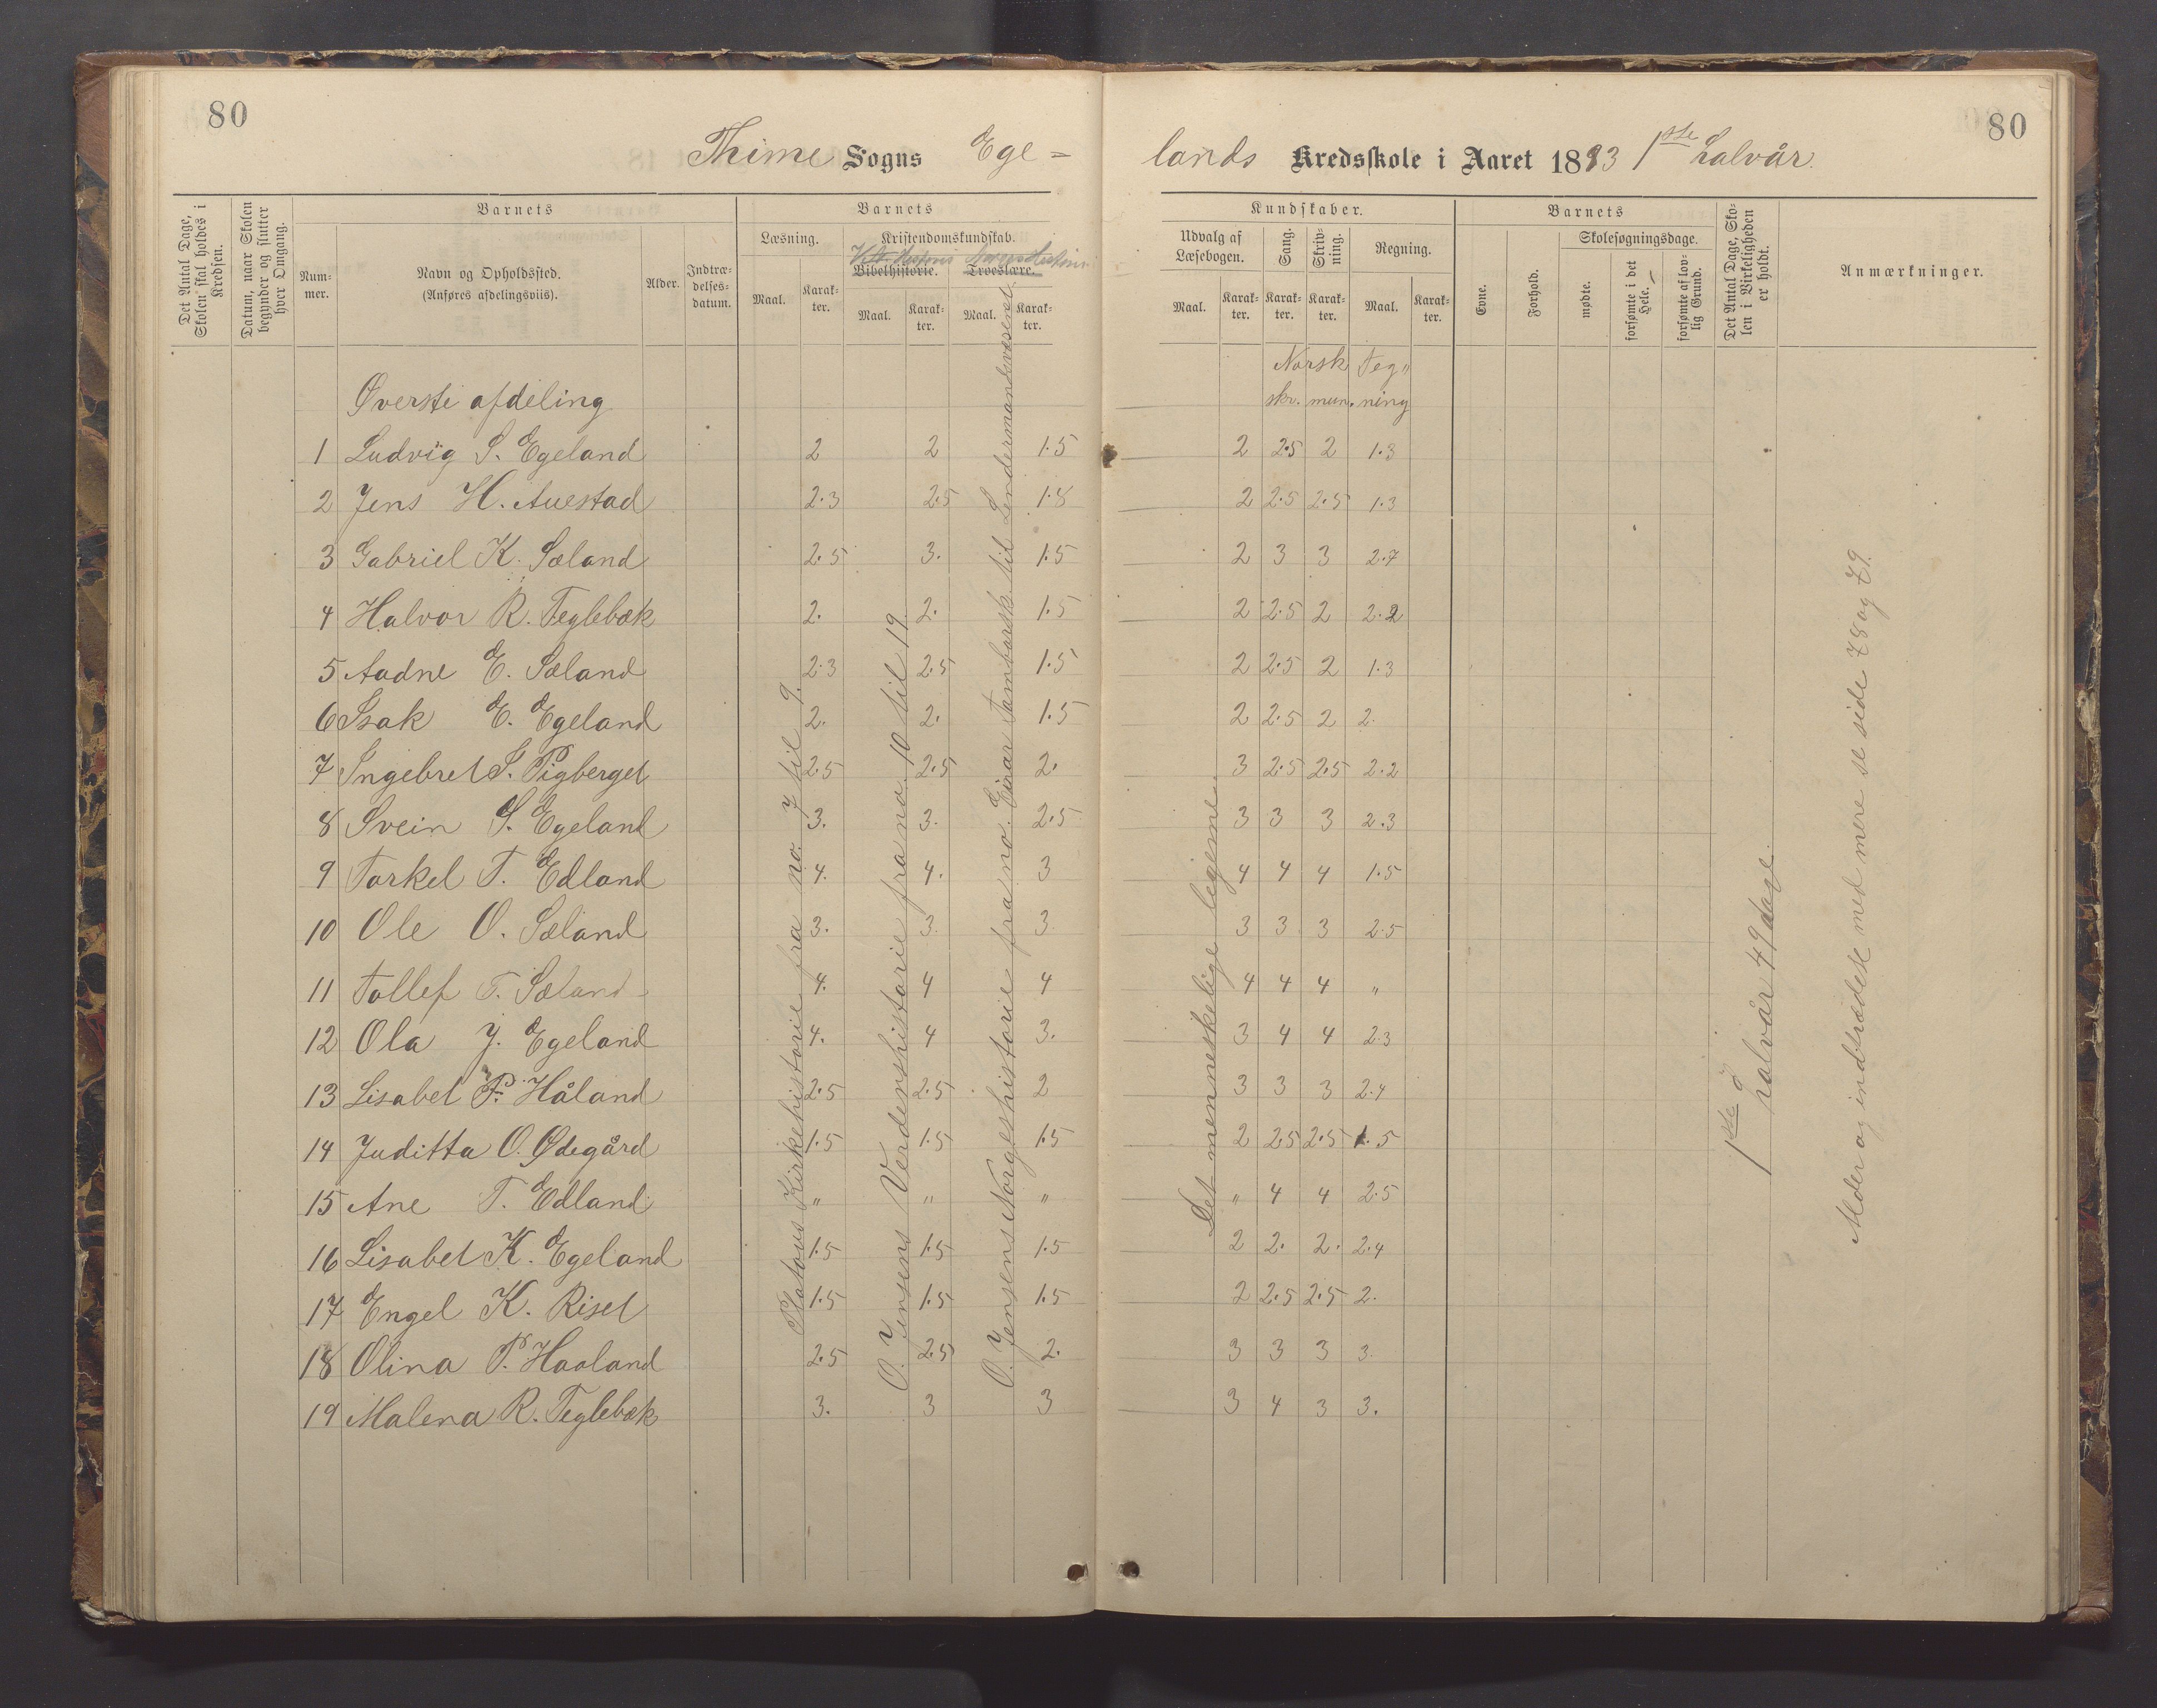 80
80
Thime Sogns Ege=
lands Kredsskole i Aaret 1883 1ste halvår.
Det Antal Dage, Skolen skal holdes i Kredsen.
Datum, naar Skolen begynder og slutter hver Omgang.
Barnets
Nummer.
Navn og Opholdssted.
(Anføres afdelingsviis).
Alder.
Indtrædelsesdatum.
Barnets
Læsning.
Maal.
Karakter.
Kristendomskundskab.
Norges Historie
Bibelhistorie.
Troeslære.
Maal.
Karakter.
Maal.
Karakter.
Kundskaber.
Udvalg af Læsebogen.
Sang.
Skrivning.
Regning.
Maal.
Karakter.
Karakter.
Karakter.
Maal.
Karakter.
Barnets
Evne.
Forhold.
Skolesøgningsdage.
mødte.
forsømte i det Hele.
forsømte af lovlig Grund.
Det Antal Dage, Skolen i Virkeligheden er holdt.
Anmærkninger.
Norsk Teg"
Øverste afdeling
skr. mun. ning
1 Ludvig S. Egeland 2 2 1.5 2 2.5 2 1.3
2 Jens H. Auestad 2.3 2.5 1.8 2 2.5 2.5 1.3
3 Gabriel K. Sæland 2.5 3. 1.5 2 3 3 2.7
4 Halvor R. Teglebæk 2. 2. 1.5 2 2.5 2 2.2
5 Aadne E. Sæland 2.3 2.5 1.5 2 2.5 2 1.3
6 Isak E. Egeland 2. 2. 1.5 2 2.5 2 2.
7 Ingebret S. Pigberget 2.5 2.5 2. 3 2.5 2.5 2.2
8 Svein S. Egeland 3. 3. 2.5 3 3 3 2.3
9 Torkel T. Edland 4. 4. 3 4 4 4 1.5
10 Ole O. Sæland 3. 3. 3 3 3 3 2.5
11 Tollef T. Sæland 4. 4 4 4 4 4 "
12 Ola J. Egeland 4. 4 3. 3 4 4 2.3
13 Lisabet P. Håland 2.5 2.5 2 3 3 3 2.4
14 Juditta O. Ødegård 1.5 1.5 1.5 2 2.5 2.5 1.5
15 Ane T. Edland " " " " 4 4 2.5
16 Lisabet K. Egeland 1.5 1.5 1.5 2 2. 2. 2.4
17 Engel K. Riset 1.5 1.5 1.5 2 2.5 2.5 2.
18 Olina P. Haaland 2.5 2.5 2. 3 3 3 3.
19 Malena R. Teglebæk 3. 3 3 3 4 3 3.
Platous Kirkehistorie fra no. 7 til 9.
O. Jensens Verdenshistorie fra no. 10 til 19.
O. Jensens Norgeshistorie fra no. Einar Tambarsk til Lendermandsvæsenet.
Det menneskelige legeme.
1ste halvår 49 dage.
Alder og indtrædelse med mere se side 78 og 79.